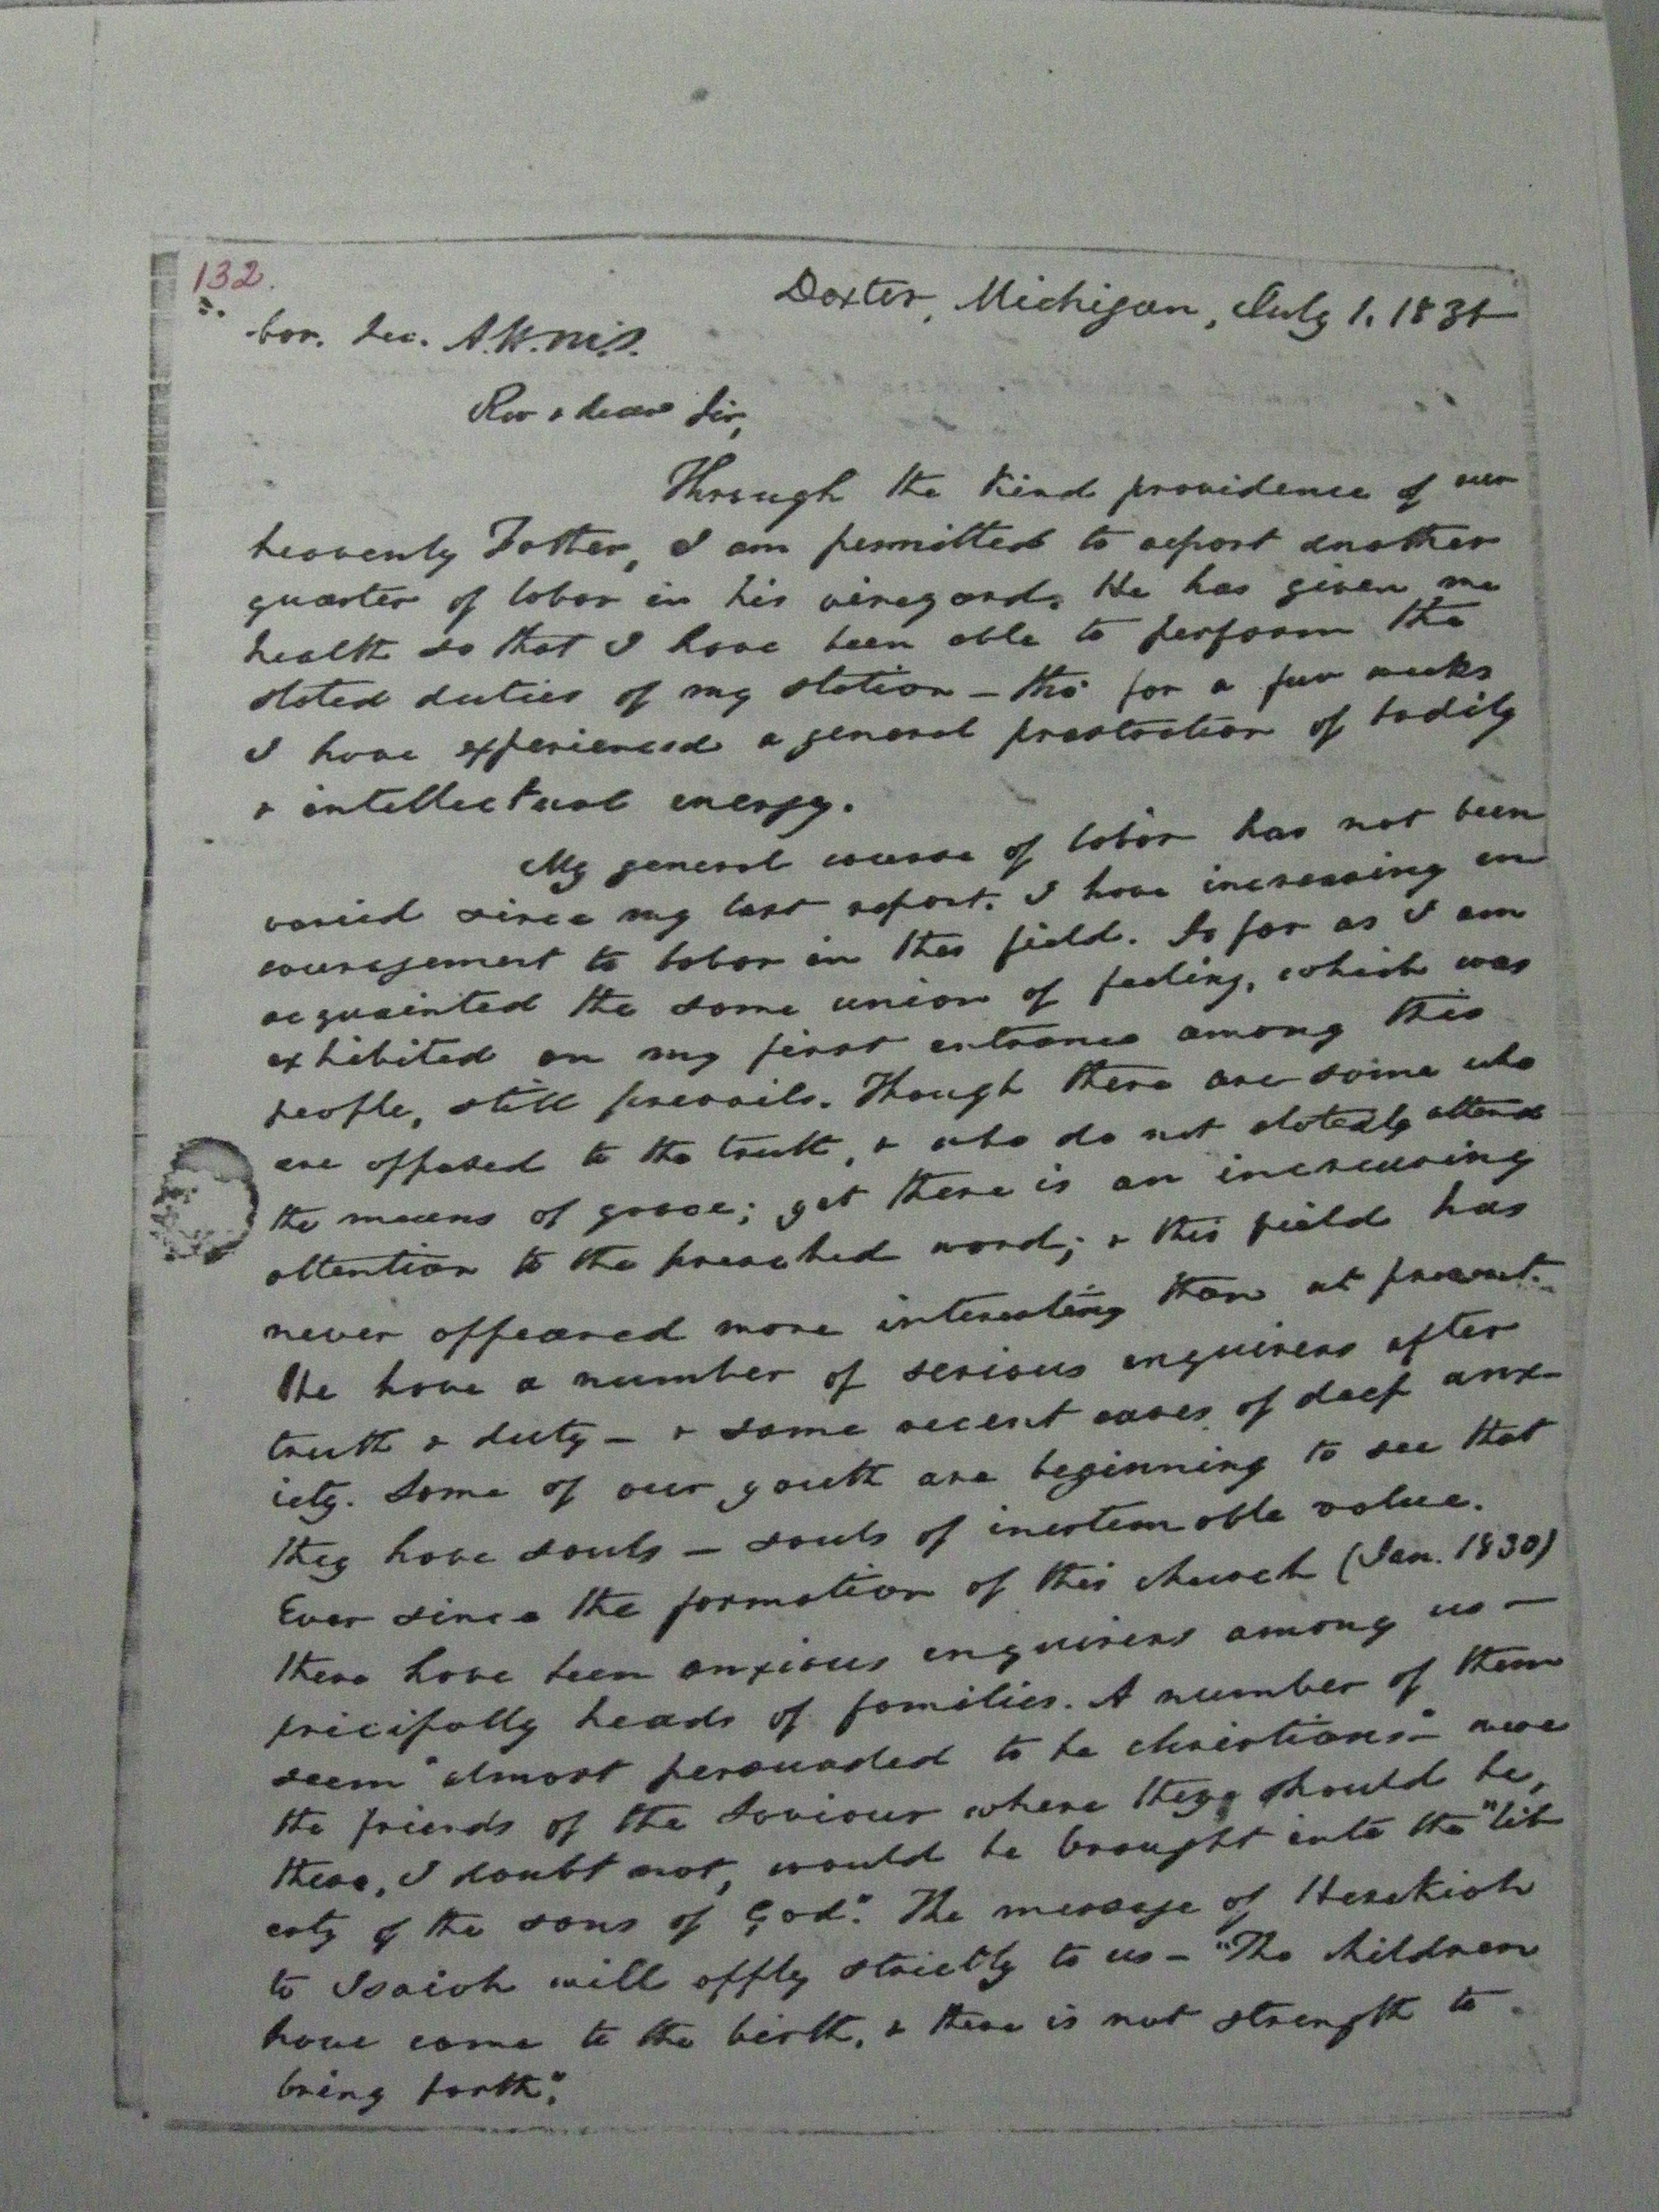 132.
Dexter, Michigan, July 1, 1831
Cor. Sec. A.H.M.S.
Rev & dear Sir,
Through the kind providence of our
heavenly Father, I am permitted to report another
quarter of labor in his vineyard. He has given me
health so that I have been able to perform the
stated duties of my station – tho' for a few weeks
I have experienced a general prostration of bodily
& intellectual energy.
My general course of labor has not been
varied since my last report. I have increasing en
couragement to labor in this field. So far as I am
acquainted the same union of feeling, which was
exhibited on my first entrance among this
people, still prevails. Though there are some who
are opposed to the truth, & who do not statedly attend
the means of grace; yet there is an increasing
attention to the preached word; & this field has
never appeared more interesting than at present.
We have a number of serious enquirers after
truth & duty – & some recent cases of deep anx–
iety. Some of our youth are beginning to see that
they have souls – souls of inestemable value.
Ever since the formation of this church (Jan. 1830)
there have been anxious enquirers among us –
pricipally heads of families. A number of them
seem "almost persuaded to be christians" – were
the friends of the Saviour where they should be,
these, I doubt not, would be brought into the "lib
erty of the sons of God". The message of Hezekiah
to Isaiah will apply strictly to us – "The children
have come to the birth, & there is not strength to
bring forth".